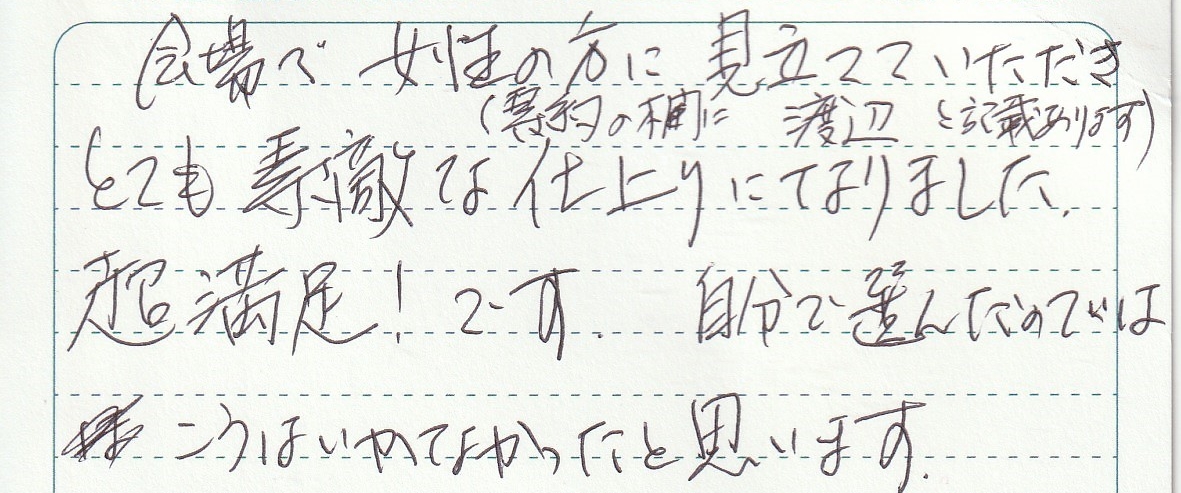 会場で 女性の方に 見立てていただき
(予約の欄に 渡辺 と記載あります)
とても素敵な仕上りになりました.
超満足!です. 自分で選んだのでは
こうはいかなかったと思います.